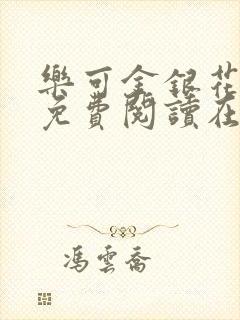 樂可金銀花
免費閱讀在
馮雲喬